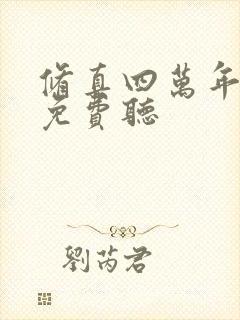 脩真四萬年
免費聽
劉芮君